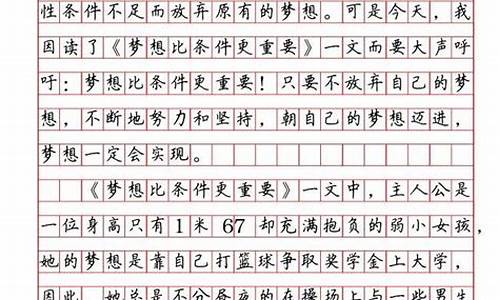 性条件不足而放弃原有的梦想。可是今天，我
因读了《梦想比条件更重要》一文而要大声呼
吁：梦想比条件更重要！只要不放弃自己的梦
想，不断地努力和坚持，朝自己的梦想迈进，
梦想一定会实现。
《梦想比条件更重要》一文中，主人公是
一位身高只有1米67却充满抱负的弱小女孩，
她的梦想是靠自己打篮球争取奖学金上大学，
因此，她总是不分昼夜的在操场上与一些男生